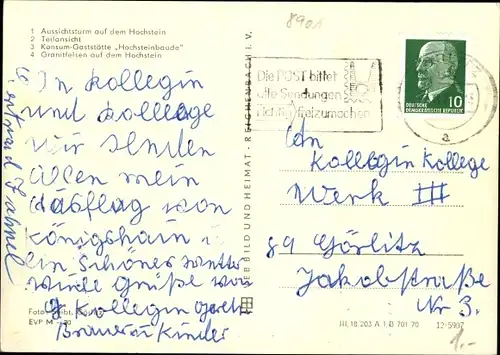 8901
1 Aussichtsturm auf dem Hochstein
2 Teilansicht
3 Konsum-Gaststätte „Hochsteinbaude"
4 Granitfelsen auf dem Hochstein
In Kollegin
und Kollege
wir senden
allen mein
Ausflug von
Königshain
ein Schöner wetter
viele Grüße von
Kollegin
Brauer u Kinder
Foto:
EVP M
VEB BILD UND HEIMAT · REICHENBACH I. V.
Die POST bittet
alle Sendungen
richtig freizumachen
DEUTSCHE
DEMOKRATISCHE REPUBLIK
10
a
An
Kollegin Kollege
Werk III
89 Görlitz
Jakobstraße
Nr 3.
III 18 203 A 1 B 701 70
12-5907
1.-